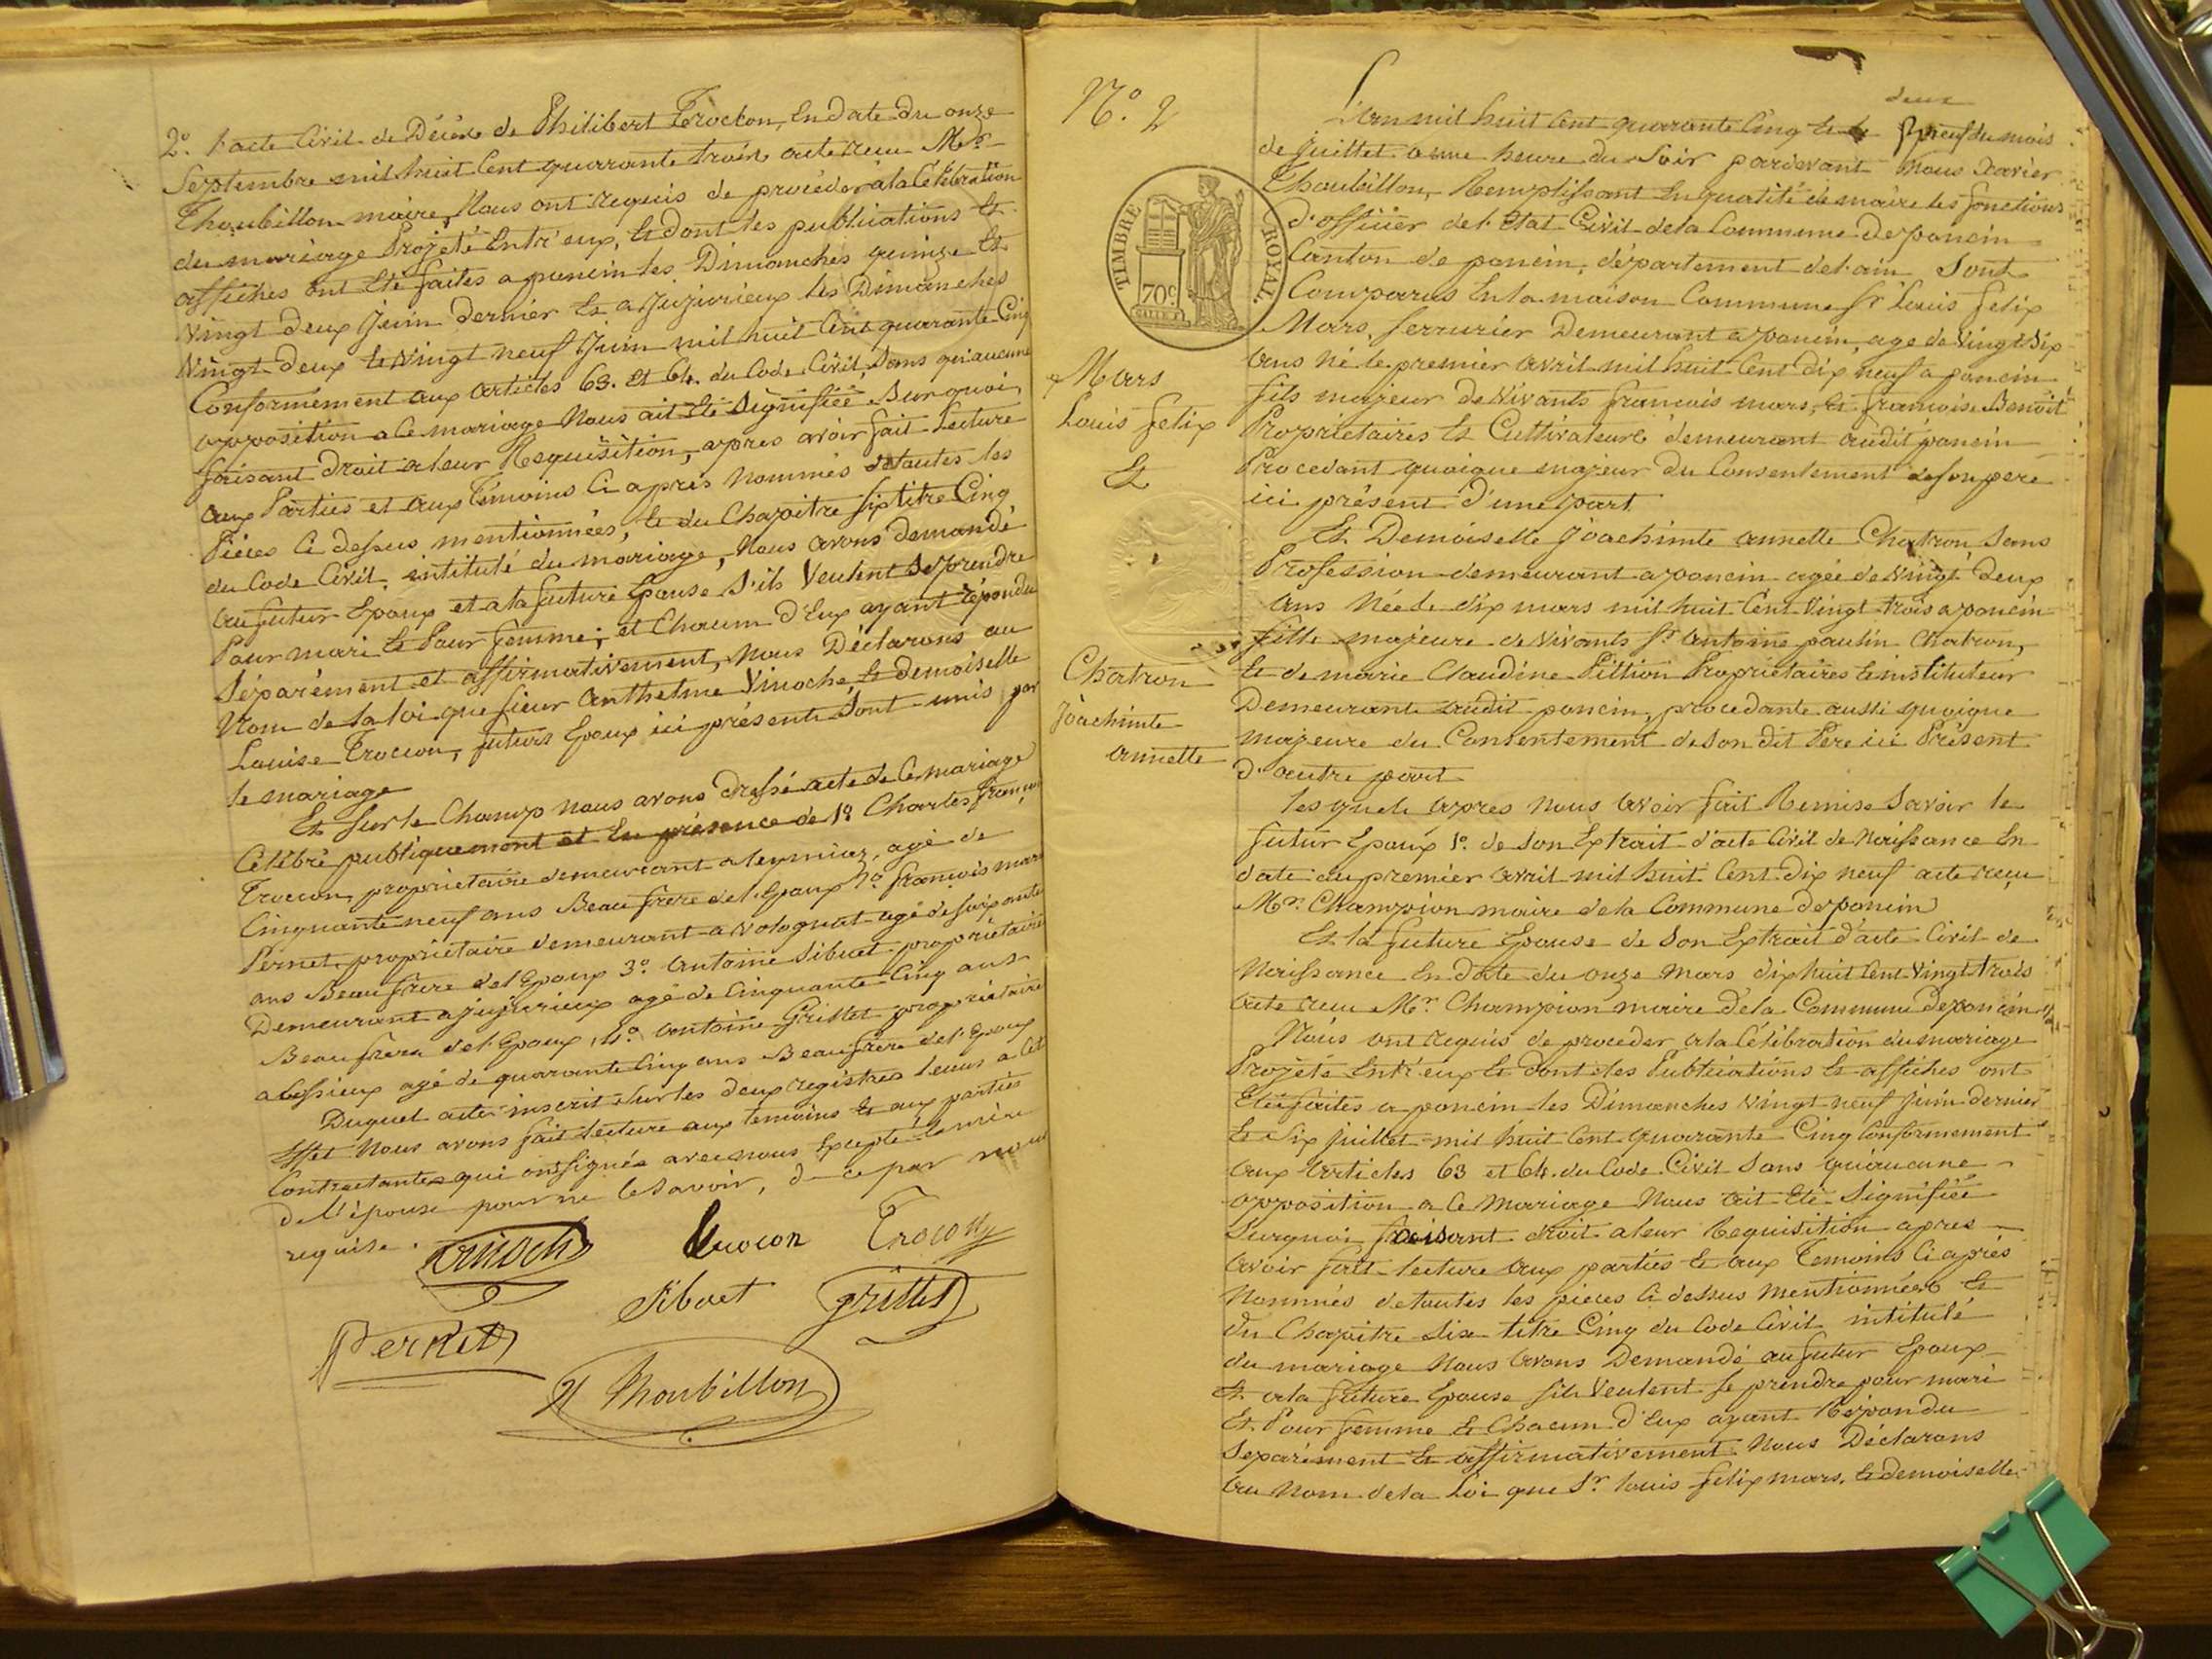 2.º l'acte Civil de Décès de Philibert Trocton, En date du onze
Septembre mil huit Cent quarante trois acte reçu Mr.
Thoubillon maire, Nous ont requis de procéder a la Célébration
du mariage Projeté Entr'eux, Et dont les publications Et
affiches ont Eté faites a poncin les Dimanches quinze Et
Vingt deux Juin dernier Et a Jujurieux les Dimanches
Vingt-deux Et Vingt neuf Juin mil huit Cent quarante Cinq
Conformement aux articles 63. Et 64. du Code Civil, Sans qu'aucune
opposition a Ce mariage Nous ait Eté Signifiée Surquoi
faisant Droit a leur Requisition, apres avoir fait Lecture
aux Parties et aux Témoins Ci après Nommés de toutes les
Pièces Ci dessus mentionnées, Et du Chapitre Six titre Cinq
du Code Civil, intitulé du mariage, Nous avons demandé
au futur Epoux et a la future Epouse S'ils Veulent Se prendre
Pour mari Et Pour femme; et Chacun D'Eux ayant répondu
Séparément et affirmativement, Nous Déclarons au
Nom de la loi que Sieur Anthelme Vinoche Et demoiselle
Louise Trocon, futurs Epoux ici présents Sont unis par
le mariage
Et Sur le Champ nous avons dressé acte de Ce mariage
Célébré publiquement et En présence de 1º Charles françois
Trocon, propriétaire demeurant a leymiaz, agé de
Cinquante neuf ans Beau frère de l'Epoux 2º françois marie
Pernet, propriétaire demeurant a Volognat agé de soixante
ans Beau frère de l'Epoux 3º. Antoine Sibuet propriétaire
Demeurant a jujurieux agé de Cinquante Cinq ans
Beau frère de l'Epoux, 4º Antoine Grillet propriétaire
a Cessieux agé de quarante Cinq ans Beau frère de l'Epoux
Duquel acte inscrit Sur les deux registres tenus a Cet
Effet Nous avons fait lecture aux temoins Et aux parties
Contractantes qui ont signés avec nous Excepté la mère
de l'épouse pour ne le savoir, de ce par nous
requise.
Vinoche Trocon Trocon
Sibuet Grillet
Pernet
Thoubillon
Nº. 2
deux
L'an mil huit Cent quarante Cinq Et le neuf du mois
de Juillet a une heure du Soir pardevant Nous Xavier
Thoubillon, Remplissant En qualité de maire les fonctions
d'officier de l'Etat Civil de la Commune De poncin
Canton de poncin, département de l'ain, Sont
Comparus En la maison Commune Sr. Louis felix
Mars, Serrurier Demeurant a poncin, agé de Vingt Six
ans né le premier avril mil huit Cent dix neuf a poncin
fils majeur de Vivants françois mars, Et françoise Benoit
Propriétaires Et Cultivateurs demeurant audit poncin
Procedant quoique majeur du Consentement de son père
ici présent d'une part
Et Demoiselle Joachimte Annette Chatron Sans
Profession demeurant a poncin agée de Vingt deux
Ans Née le dix mars mil huit Cent Vingt trois a poncin
fille majeure de Vivants Sr. Antoine paulin Chatron,
Et de marie Claudine Pittion Propriétaires Et instituteur
Demeurants audit poncin, procedante aussi quoique
majeure du Consentement de Son dit Père ici Présent
d'autre part
lesquels après Nous avoir fait Remise Savoir le
futur Epoux 1º. de Son Extrait d'acte Civil de Naissance En
date du premier avril mil huit Cent dix neuf acte reçu
Mr. Champion maire de la Commune de poncin
Et la future Epouse de Son Extrait d'acte Civil de
Naissance En date du onze mars dix huit Cent Vingt trois
acte reçu Mr. Champion maire de la Commune de poncin
Nous ont requis de proceder a la Célébration du mariage
Projeté Entr'eux Et Dont les Publications Et affiches ont
Eté faites a poncin les Dimanches Vingt neuf Juin dernier
Et Six Juillet mil huit Cent quarante Cinq Conformement
aux articles 63 et 64. du Code Civil Sans qu'aucune
opposition a Ce Mariage Nous ait Eté Signifiée
Surquoi faisant droit a leur Requisition apres
avoir fait lecture aux parties Et aux Temoins Ci après
Nommés de toutes les pièces Ci dessus Mentionnées Et
du Chapitre Six titre Cinq du Code Civil intitulé
du mariage Nous avons Demandé au futur Epoux
Et a la future Epouse S'ils Veulent Se prendre pour mari
Et Pour femme Et Chacun d'Eux ayant Répondu
Séparément Et affirmativement Nous Déclarons
au Nom de la Loi que Sr. louis felix mars, Et demoiselle
TIMBRE ROYAL
70c.
Mars
Louis felix
Et
Chatron
Joachimte
Annette